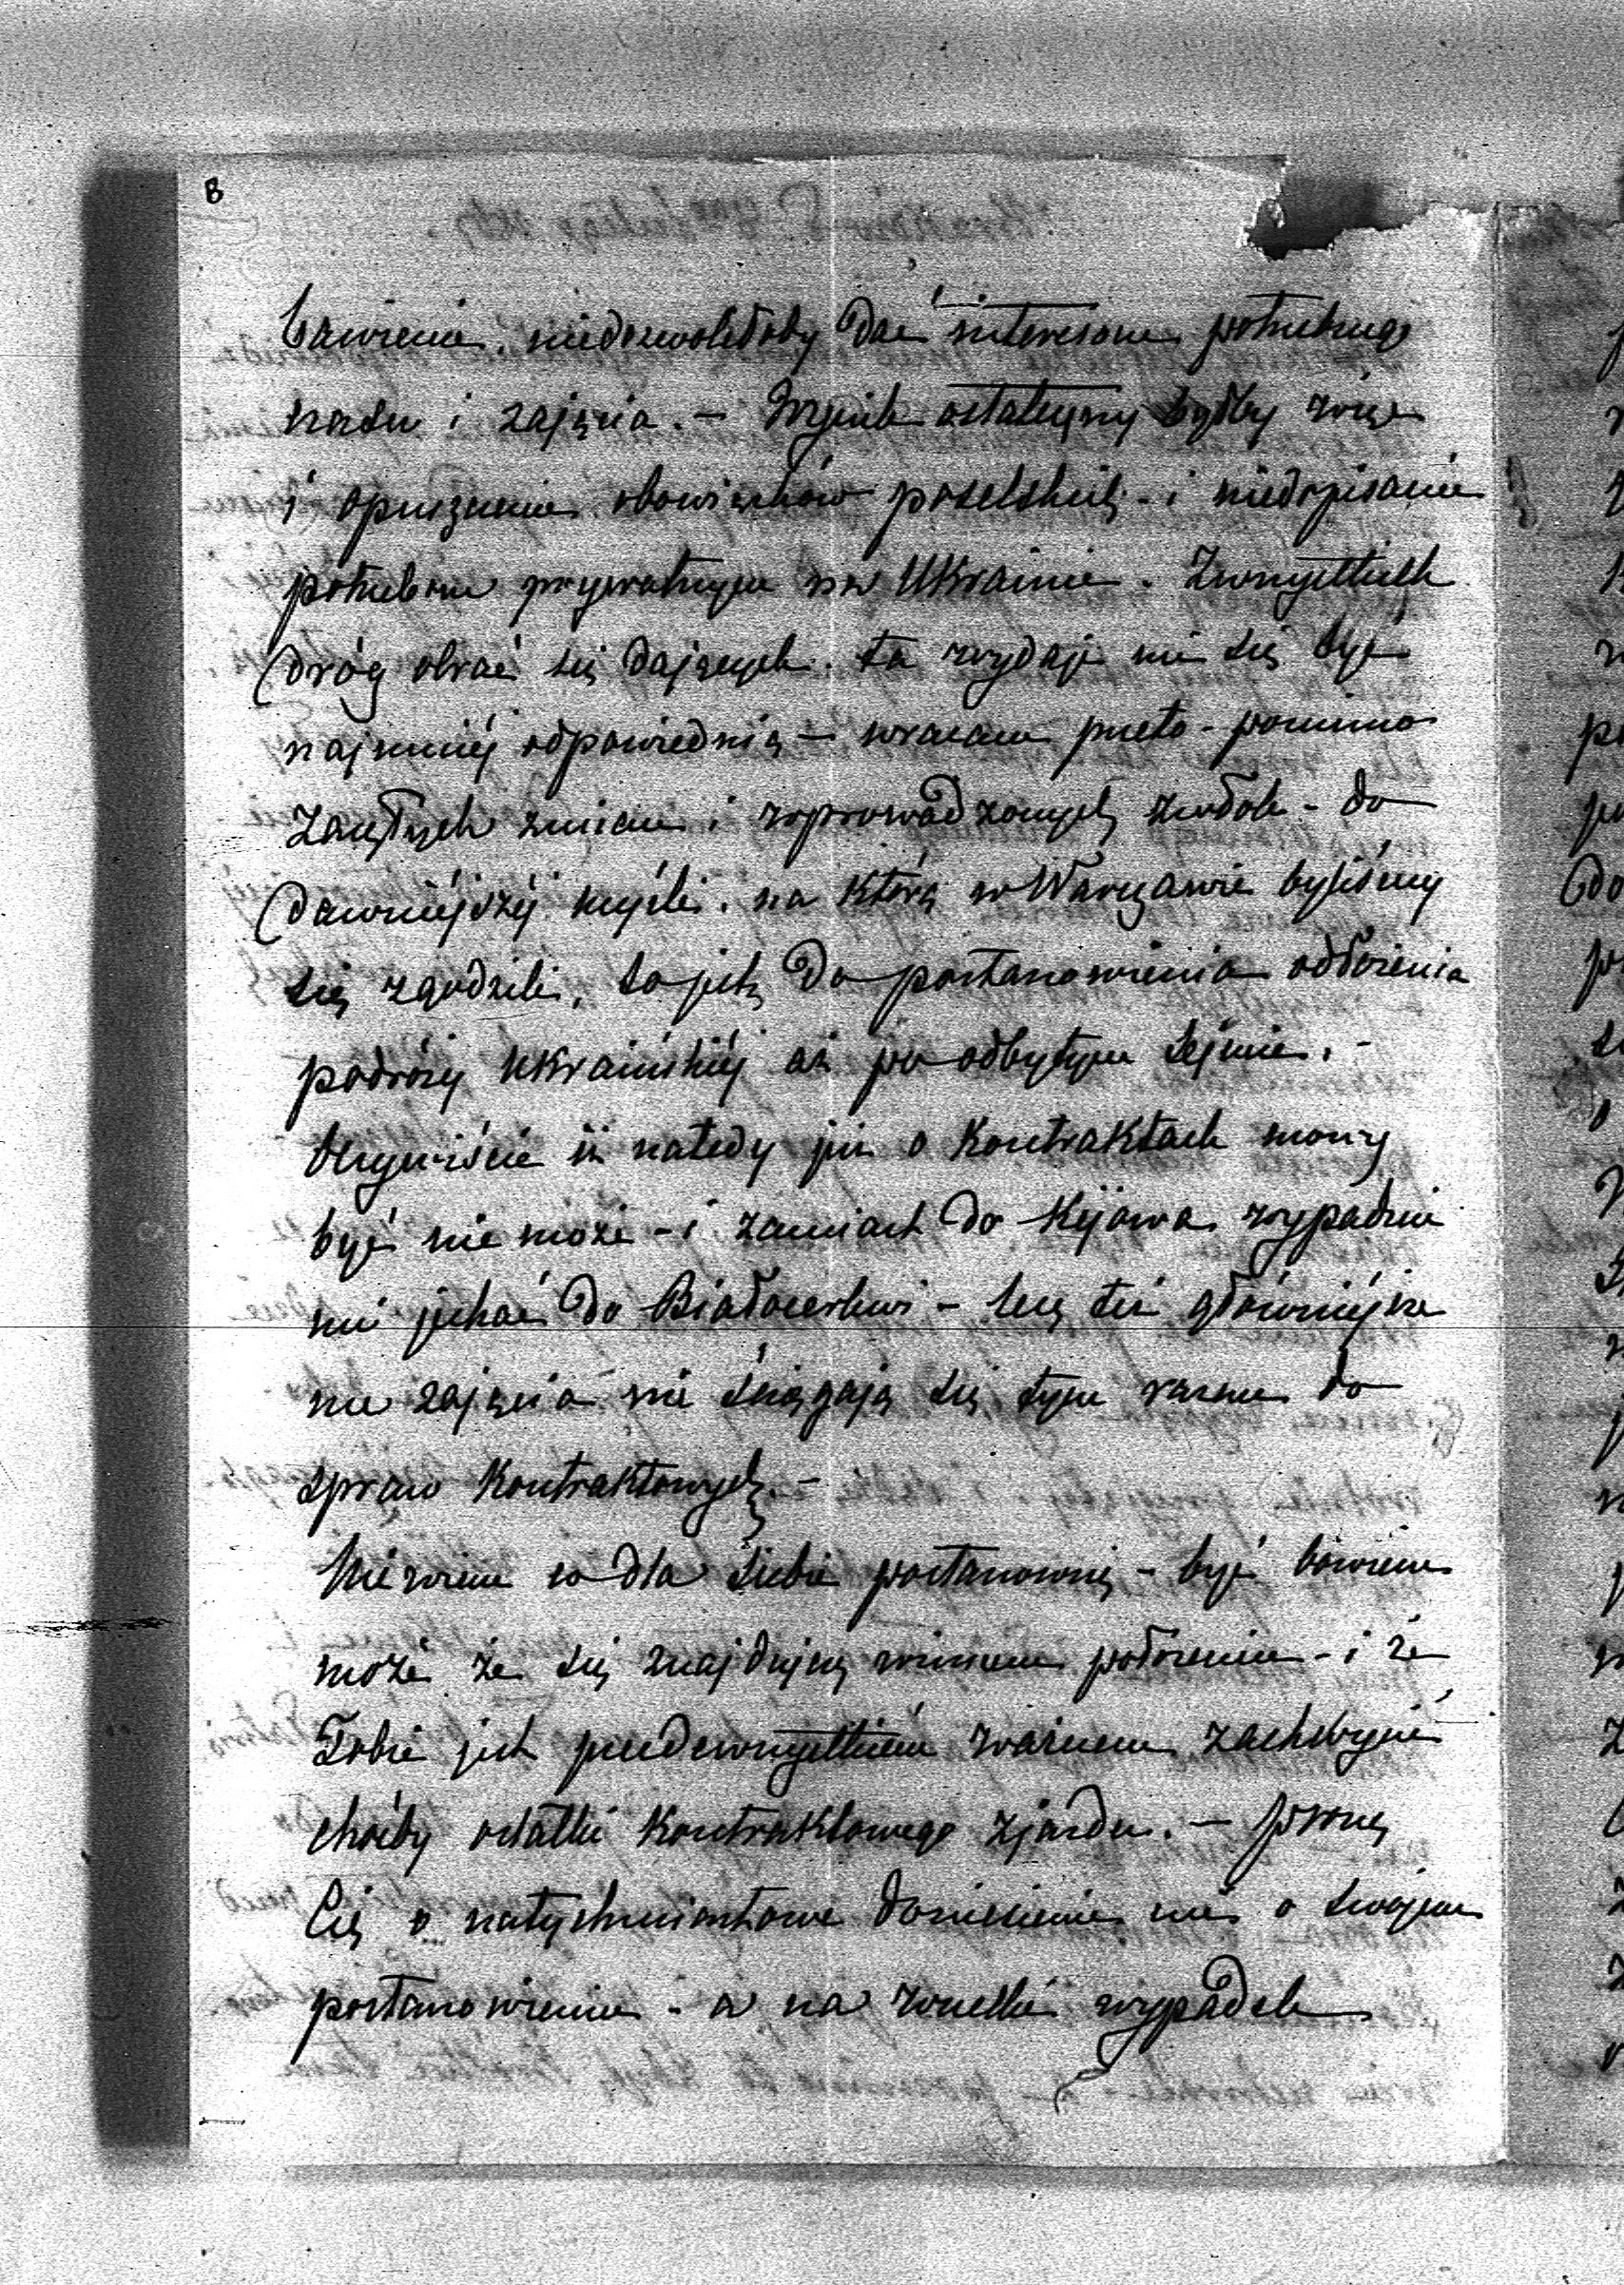 8
bawienie, niedozwoliłoby dać interesom potrzebnego
czasu i zajęcia. – Wynik ostateczny byłby więc
i opuszczenie obowiązków poselskich – i niedopisanie
potrzebom prywatnym na Ukrainie. Zwszystkich
dróg obrać się dających. ta wydaje mi się być
najmniéj odpowiednią – wracam przeto – pomimo
zaszłych zmian i wprowadzonych zwłok – do
dawniéjszéj myśli, na którą w Warszawie byliśmy
się zgodzili, to jest, do postanowienia odłożenia
podróży Ukraińskiéj aż po odbytym Sejmie. –
Oczywiście iż natedy już o Kontraktach mowy
być nie może – i zamiast do Kijowa wypadnie
mi jechać do Białocerkwi – lecz też główniejsze
me zajęcia nie ściągają się tym razem do
spraw Kontraktowych. –
Nie wiem co dla siebie postanowisz – być bowiem
może że się znajdujesz winnem położeniu – i że
Tobie jest przedewszystkiém ważnem zachwycić
choćby ostatki Kontraktowego zjazdu. – Proszę
Cię o natychmiastowe doniesienie mi o swojem
postanowieniu – a na wszelki wypadek